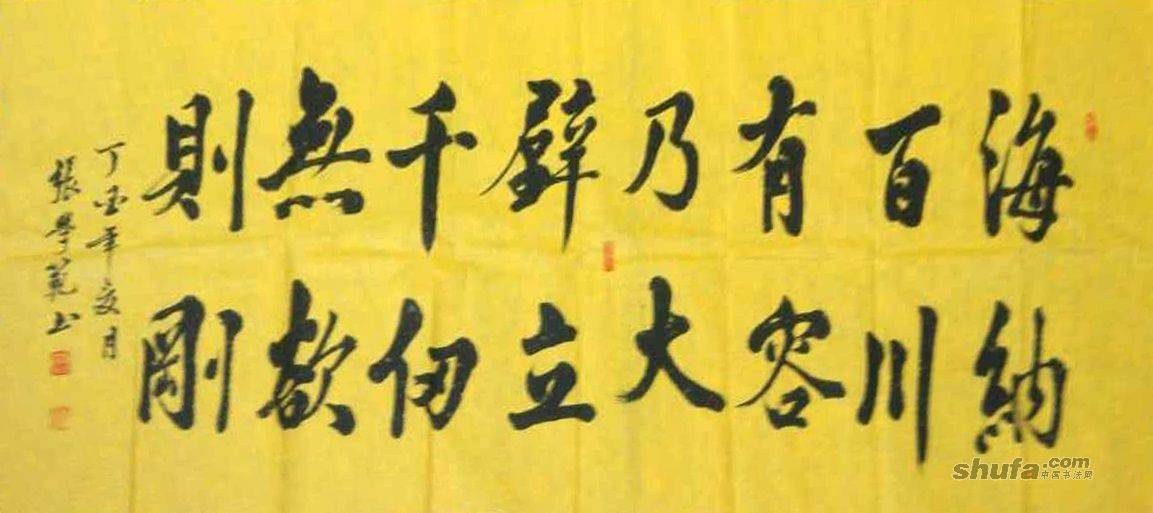 海納
百川
有容
乃大
壁立
千仞
無欲
則剛
丁酉年亥月
張學范书
shufa.com
中国书法网